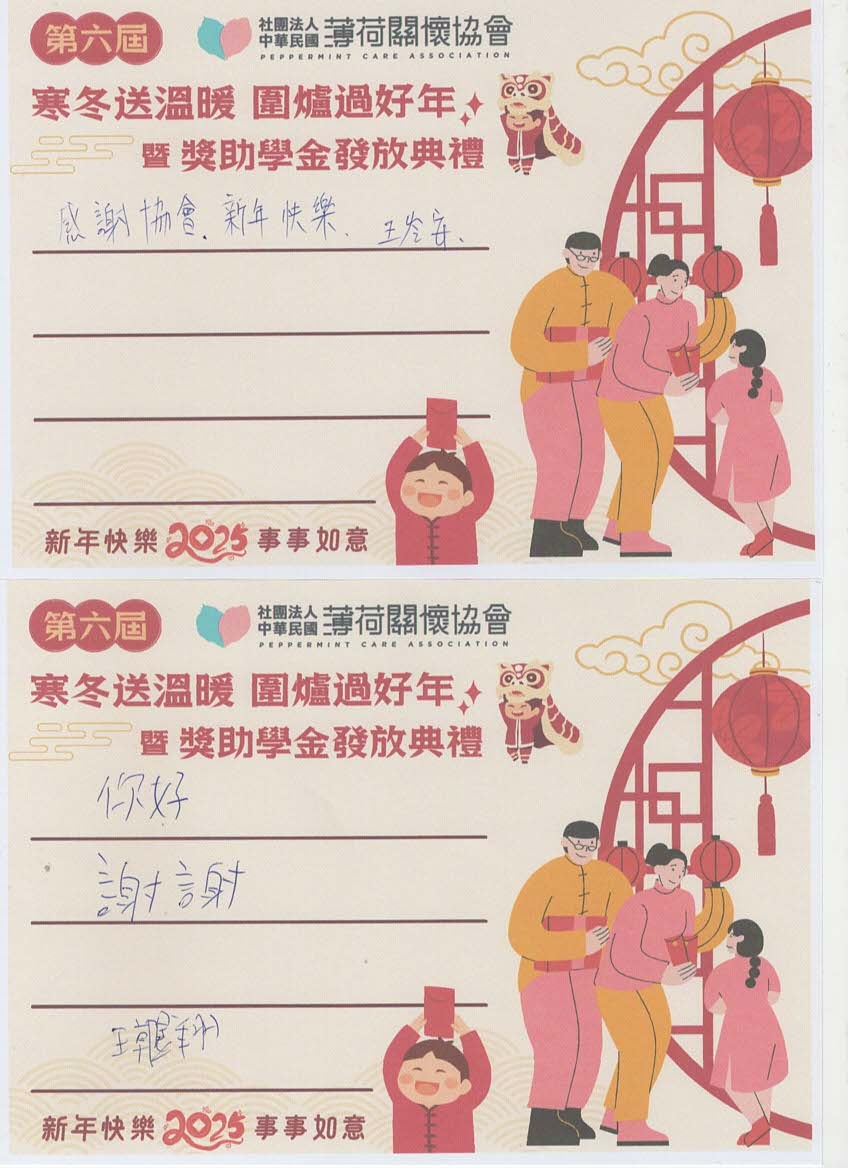 第六屆
社團法人
中華民國
薄荷關懷協會
PEPPERMINT CARE ASSOCIATION
寒冬送溫暖 圍爐過好年
暨 獎助學金發放典禮
感謝協會. 新年快樂. 王岑安.
新年快樂 2025 事事如意
第六屆
社團法人
中華民國
薄荷關懷協會
PEPPERMINT CARE ASSOCIATION
寒冬送溫暖 圍爐過好年
暨 獎助學金發放典禮
你好
謝謝
王
新年快樂 2025 事事如意